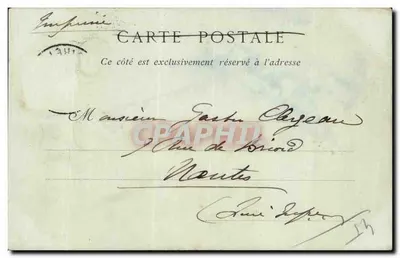 Imprimé
CARTE POSTALE
Ce côté est exclusivement réservé à l'adresse
Monsieur Gaston
CPAPHIL
Rue de Briord
Nantes